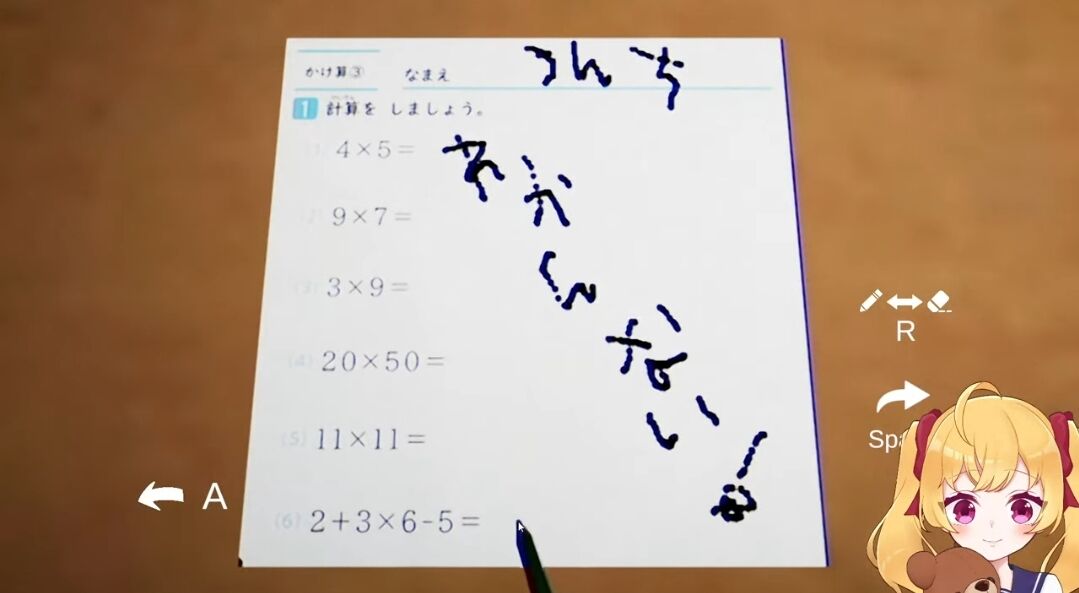 かけ算③ なまえ
1 計算を しましょう。
(1) 4×5=
(2) 9×7=
(3) 3×9=
(4) 20×50=
(5) 11×11=
(6) 2+3×6-5=
わかんない!
R
Spa
A